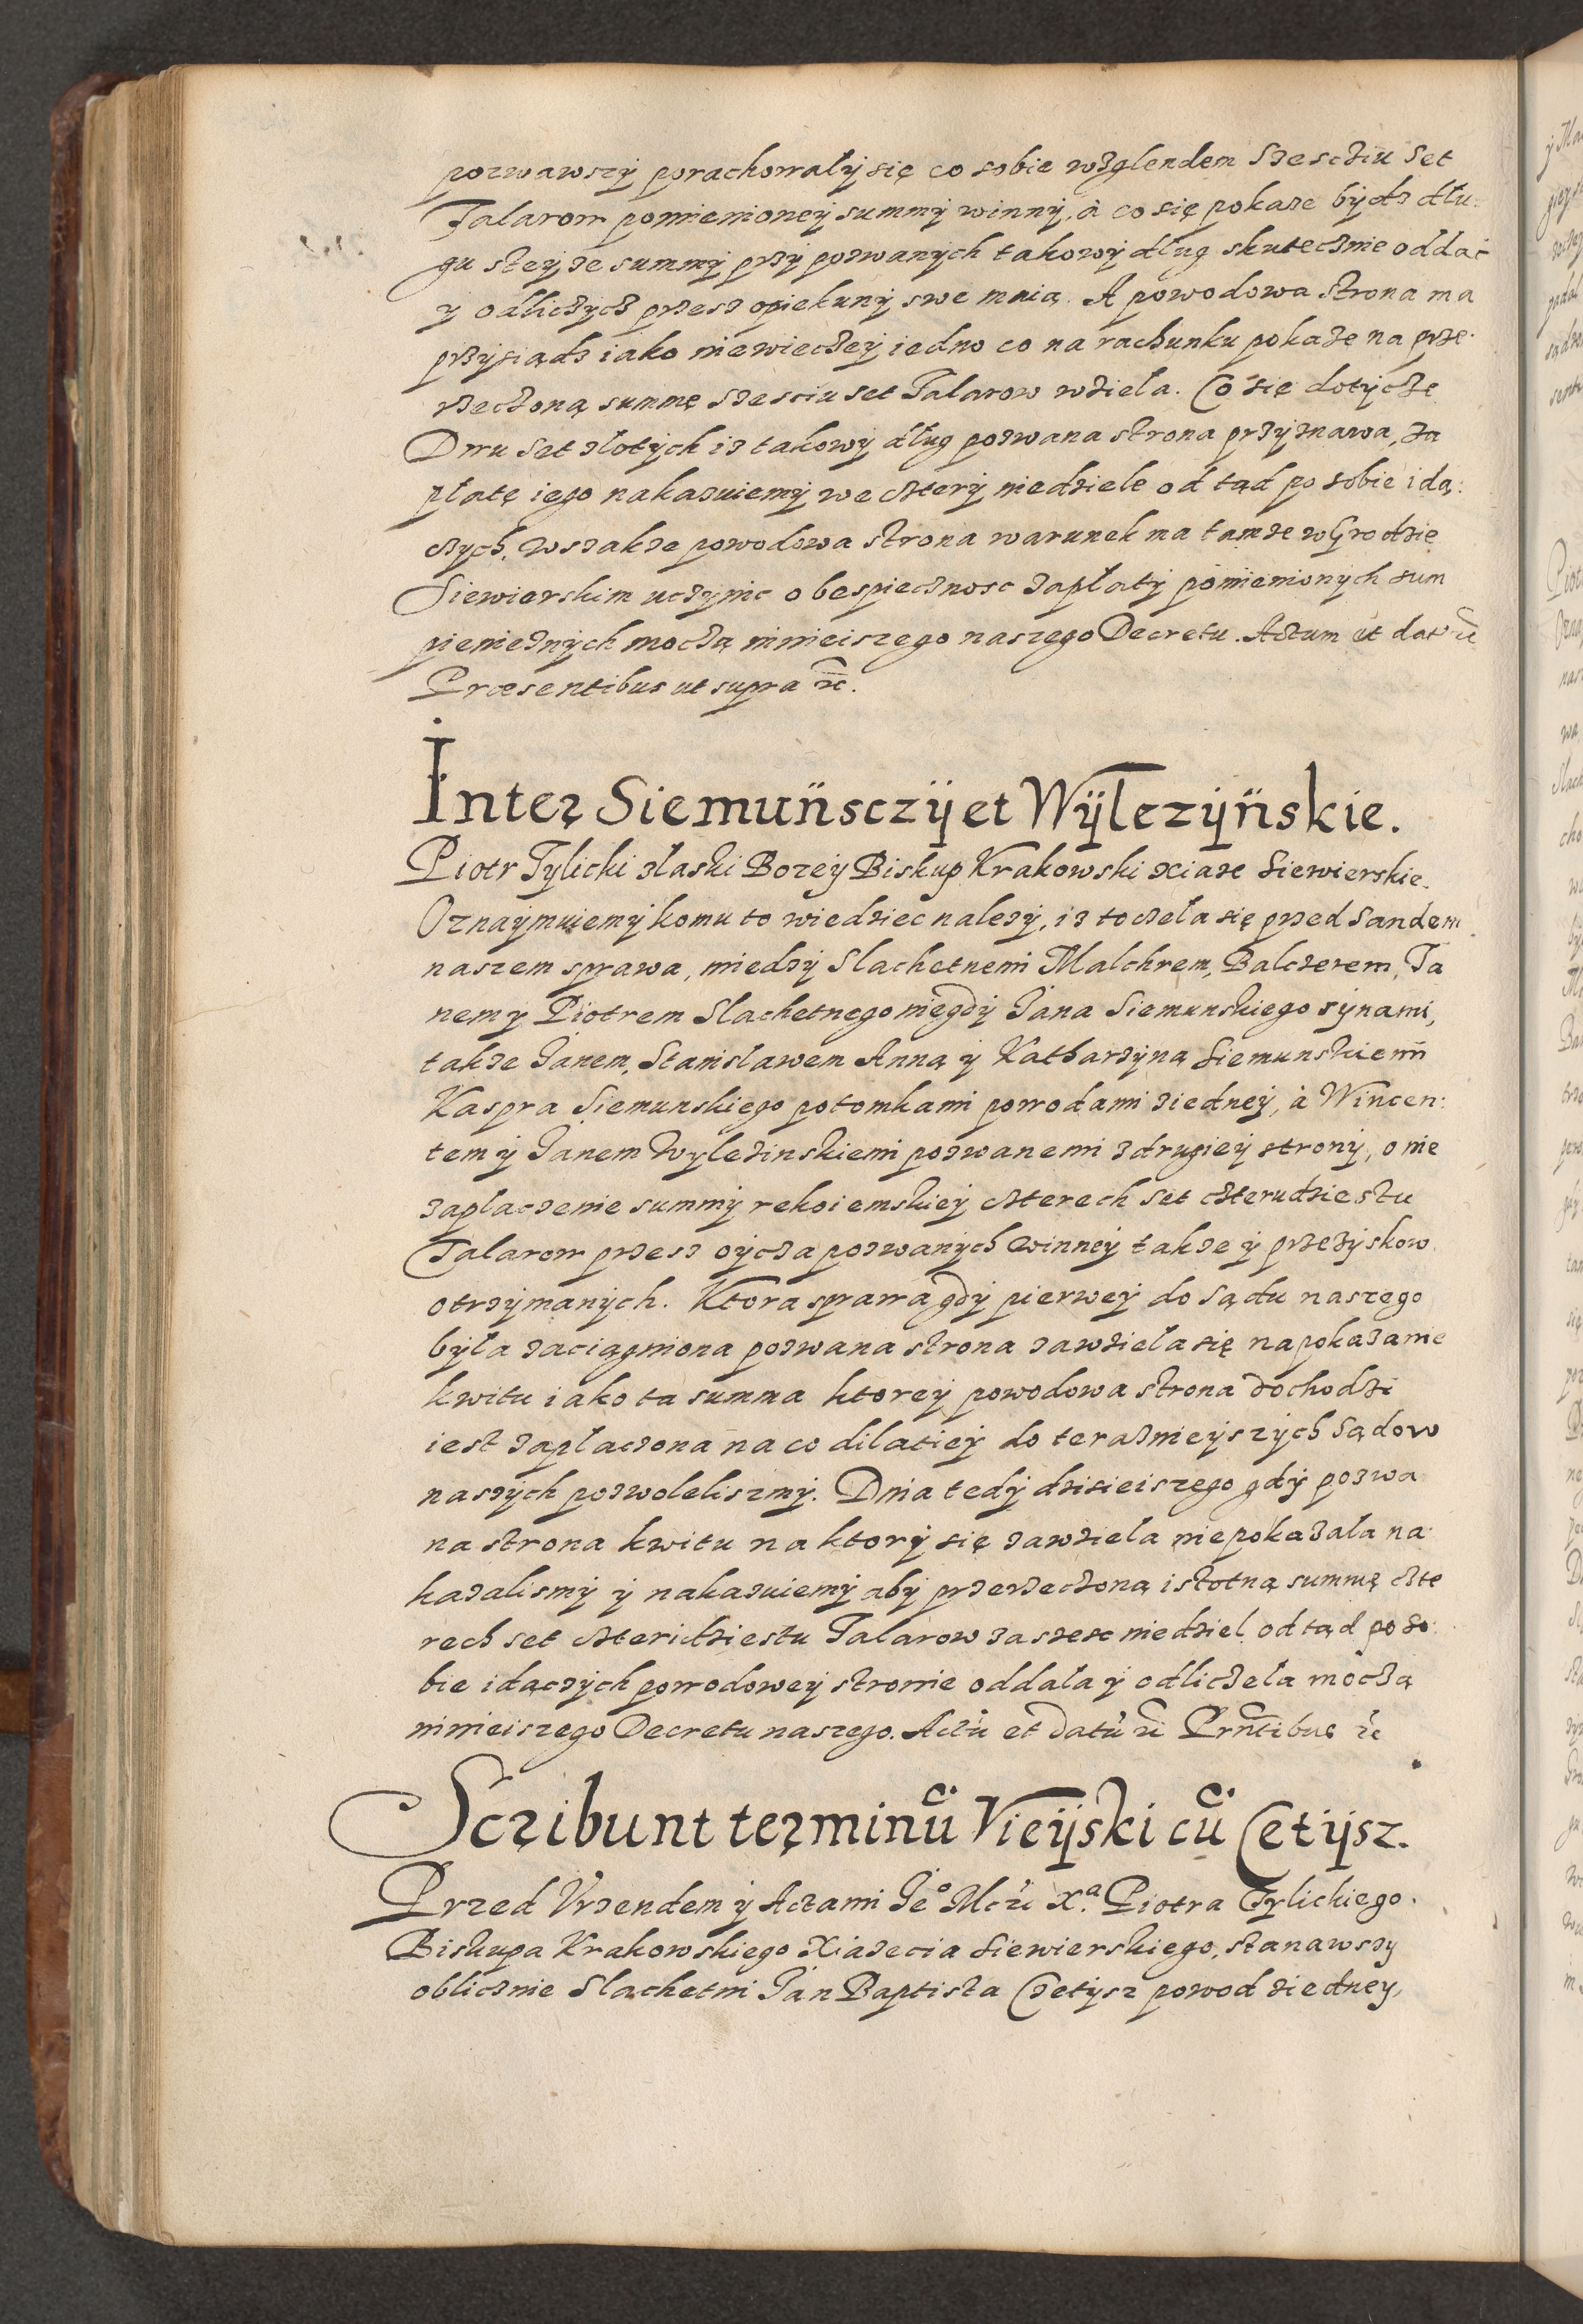 pozwawszy porachowały się co sobie wzglendem Szesciu Set
Talarow pomienioney summy winny, à co się pokaze bydz dłu:
gu steyze summy przy pozwanych takowy dług skutecznie oddać
y odliczycz przesz opiekuny swe maią. A powodowa strona ma
przysiądz iako niewieczey iedno co na rachunku pokaze na prze:
rzeczoną summę szesciu set Talarow wzieła. Co się dotycze
Dwu Set złotych iz takowy dług pozwana strona przyznawa, za
płatę iego nakazuiemy we cztery niedziele od tąd po sobie idą:
czych, wszakze powodowa strona warunek ma tamze w Grodzie
Siewierskim uczynic o bespiecznosc zapłaty pomienionych sum
pienieznych moczą ninieiszego naszego Decretu. Actum et dat ꝛc̄
Præsentibus ut supra ꝛc̄.
Inter Siemuńsczÿ et Wÿlczÿńskie.
Piotr Tylicki złaski Bozey Biskup Krakowski Xiaze Siewierskie.
Oznaymuiemy komu to wiedziec nalezy, iz toczeła się przed Sandem
naszem sprawa, miedzy Slachetnemi Malchrem, Balczerem, Ja
nem y Piotrem Slachetnego niegdy Jana Siemunskiego synami,
takze Janem, Stanisławem Anną y Katharzyną Siemunskiemi
Kaspra Siemunskiego potomkami powodami ziedney, à Wincen:
tem y Janem Wylezinskiemi pozwanemi zdrugiey strony, o nie
zapłaczenie summy rekoiemskiey czterech set czterudziestu
Talarow przesz oycza pozwanych winney takze y przezyskow
otrzymanych. Ktora sprawa gdy pierwey do Sądu naszego
była zaciągniona pozwana strona zawzieła się na pokazanie
kwitu iako ta summa ktorey powodowa strona dochodzi
iest zapłaczona na co dilatiey do teraznieyszych Sądow
naszych pozwoleliszmy. Dnia tedy dzisieiszego gdy pozwa
na strona kwitu na ktory się zawzieła niepokazała na:
kazalismy y nakazuiemy aby przerzeczoną istotną summę czte
rech set czteridziestu Talarow za szesc niedziel od tąd po so:
bie idączych powodowey stronie oddała y odliczeła moczą
ninieiszego Decretu naszego. Actū et datū ꝛc̄ Prn̄tibus ꝛc̄
Scribunt terminū Vieÿski cū Cetÿsz.
Przed Vrzendem y Actami Jeº Mczi Xª. Piotra Tylickiego.
Biskupa Krakowskiego Xiazecia Siewierskiego, stanawszy
oblicznie Slachetni Jan Baptista Czetysz powod ziedney,